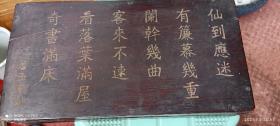 仙到應迷
有簾幕幾重
闌幹幾曲
客來不速
看落葉滿屋
奇書滿床